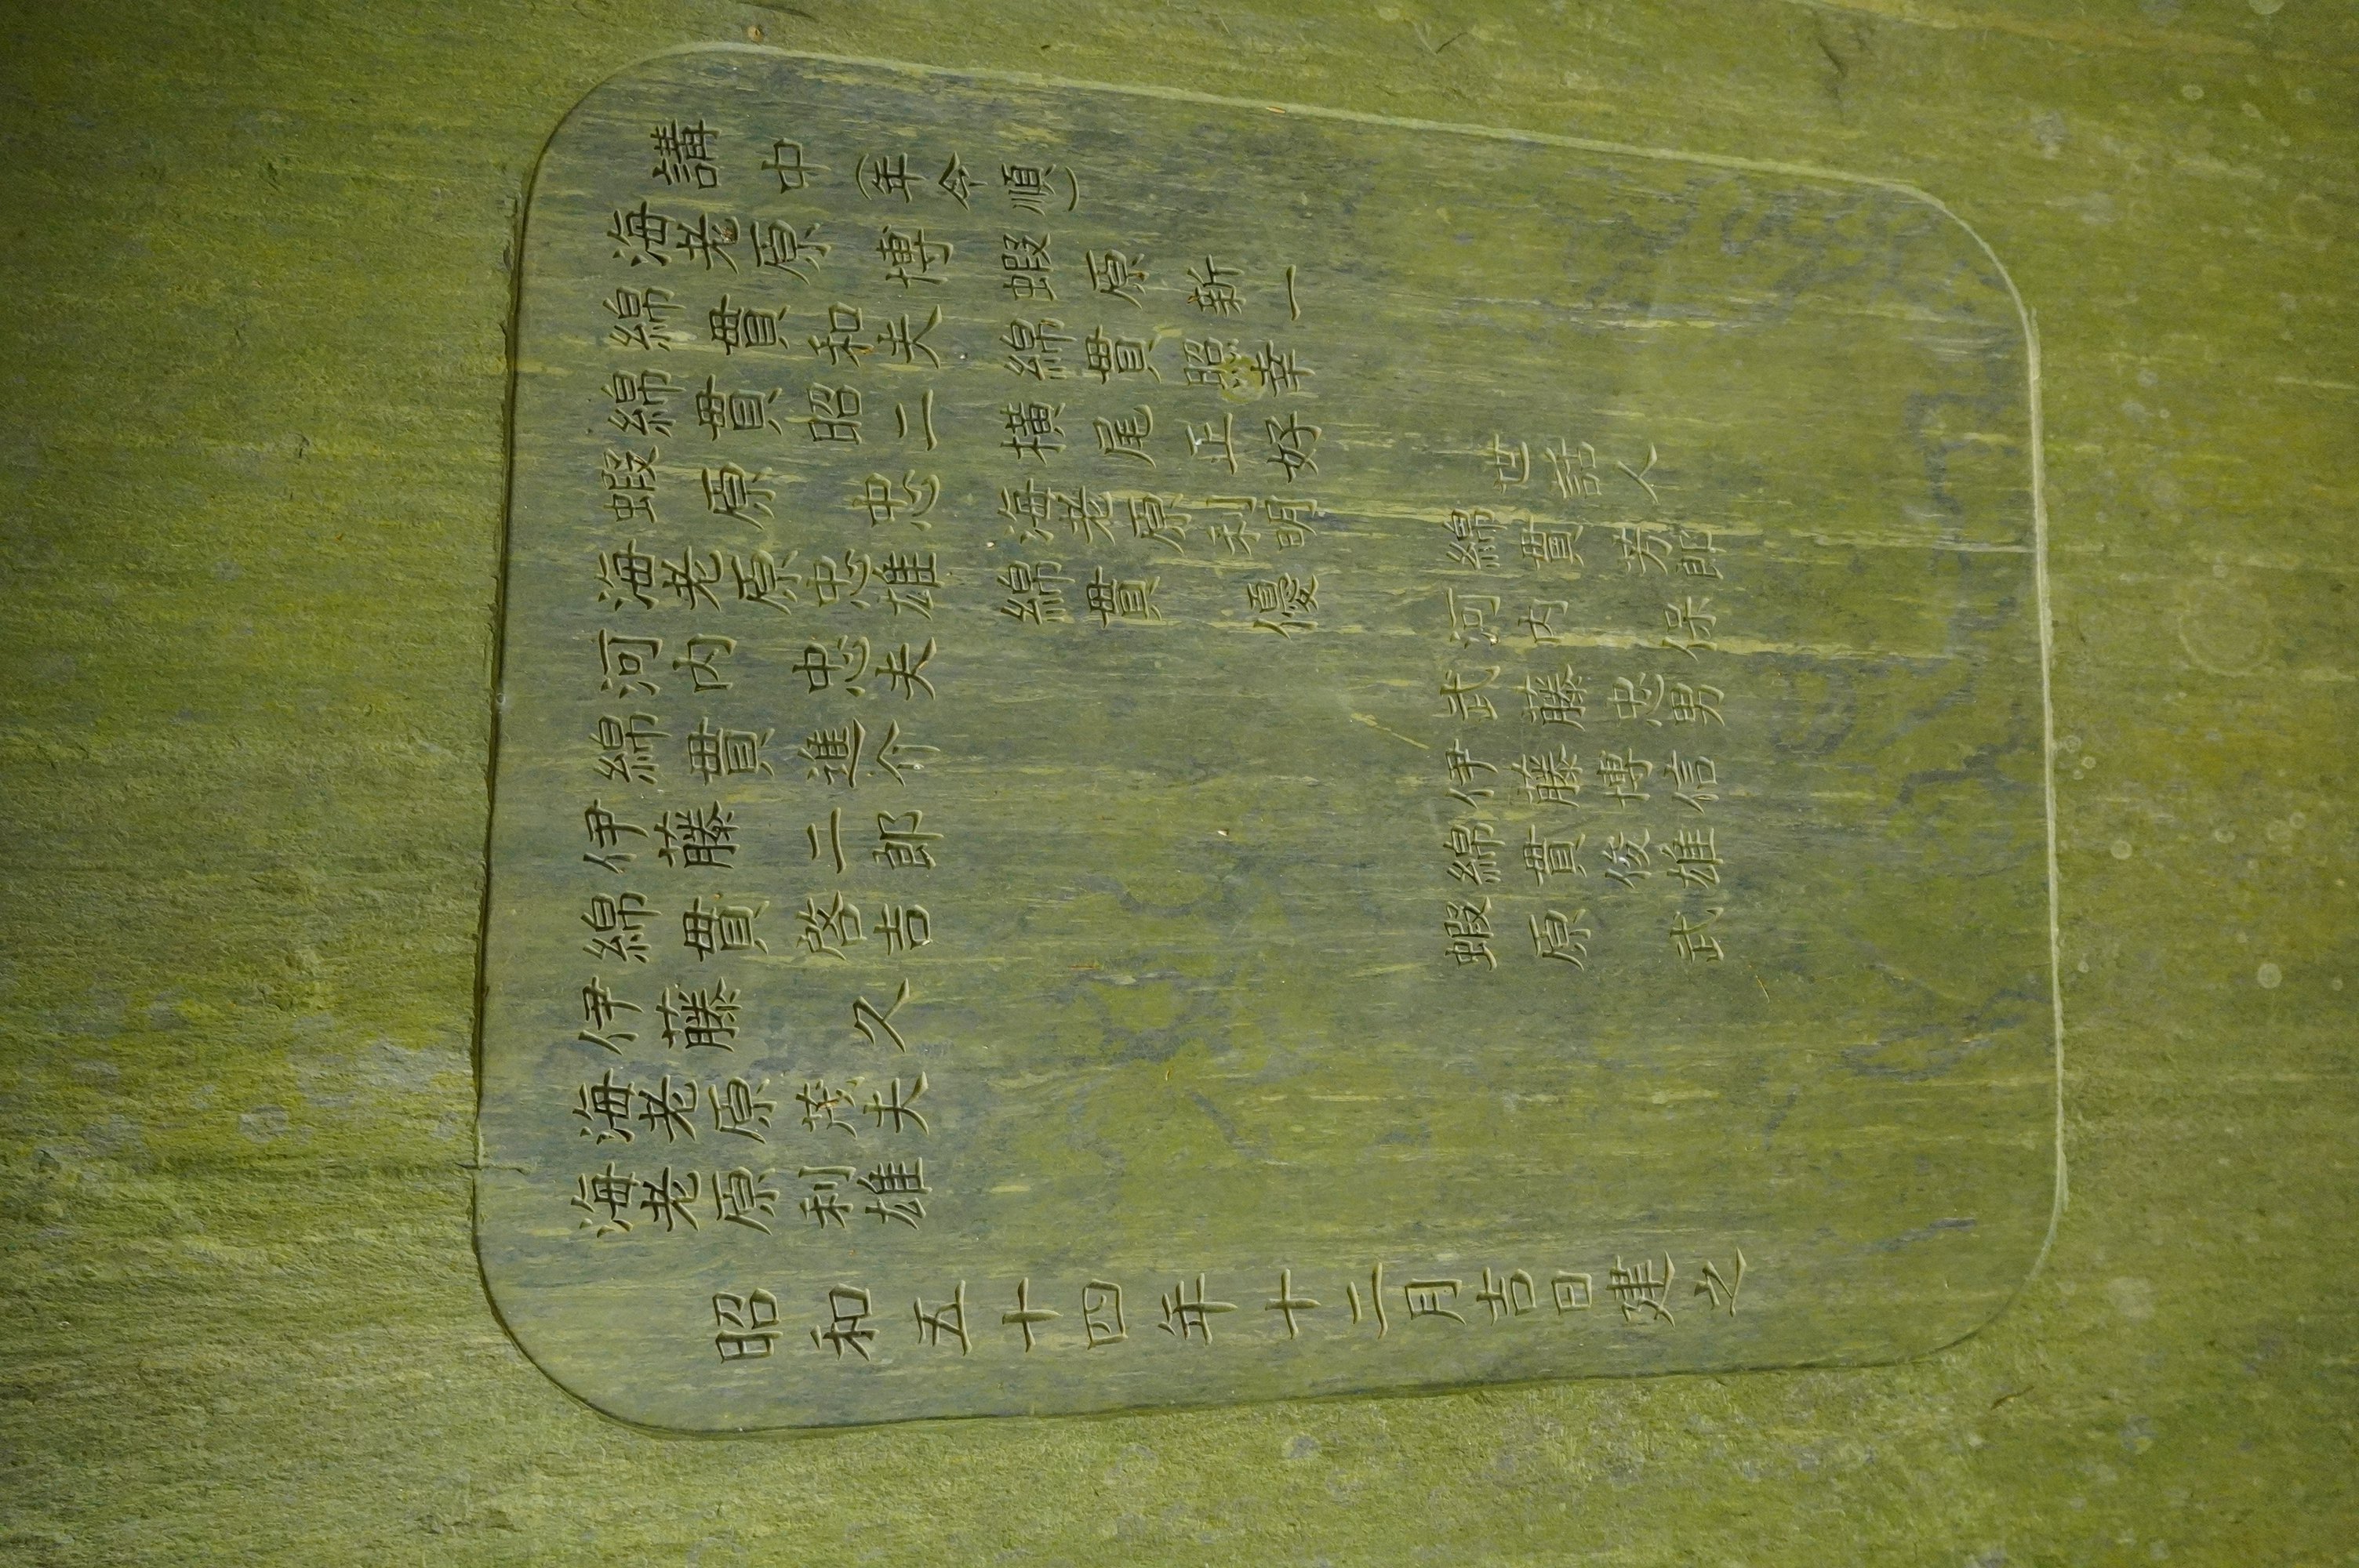 講中(年令順)
海老原博
綿貫和夫
綿貫昭二
蝦原忠
海老原忠雄
河内忠夫
綿貫進介
伊藤二郎
綿貫啓吉
伊藤久
海老原茂夫
海老原利雄
蝦原新一
綿貫昭幸
横尾正好
海老原利明
綿貫優
世話人
綿貫芳郎
河内保
武藤忠男
伊藤博信
綿貫俊雄
蝦原武
昭和五十四年十二月吉日建之